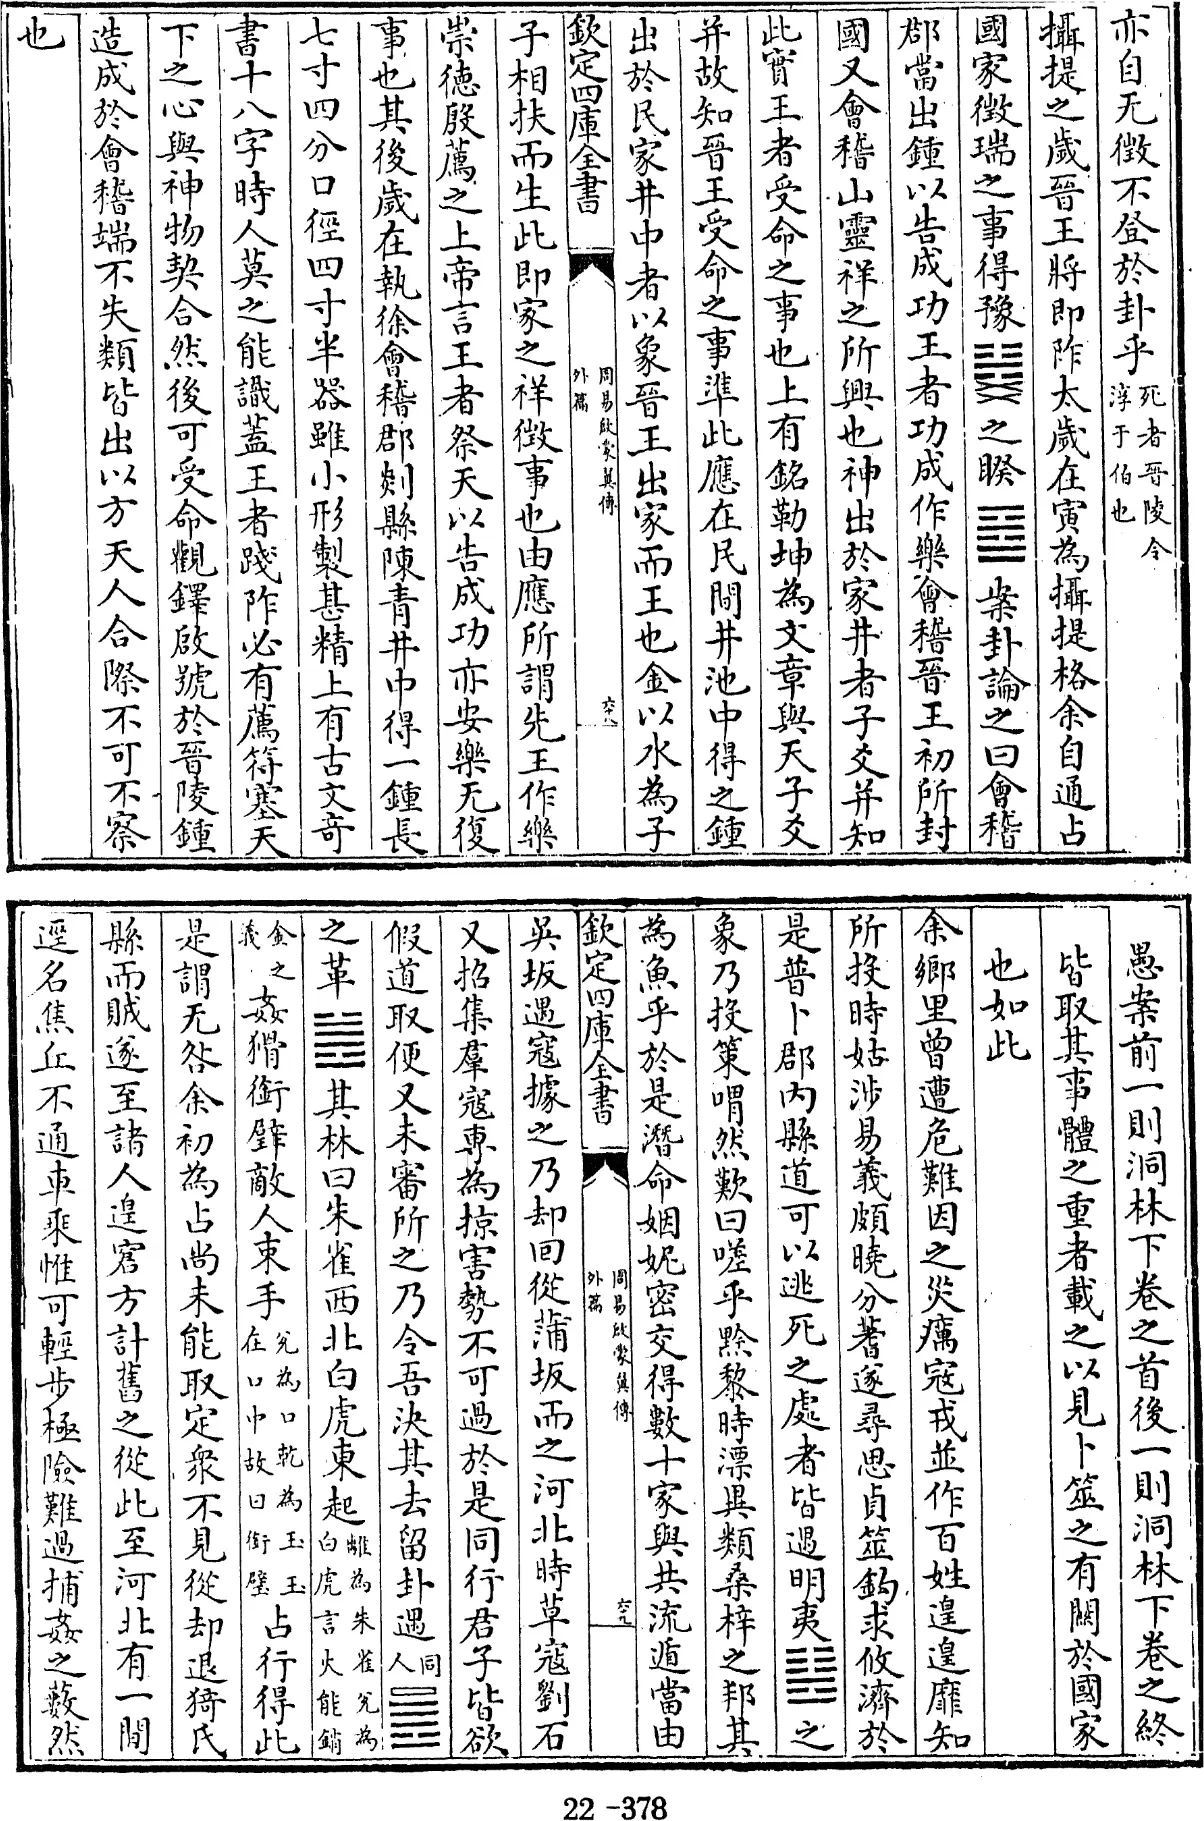 亦自无徵不登於卦乎死者晉陵令淳于伯也
攝提之歲晉王將即阼太歲在寅為攝提格余自通占
國家徵瑞之事得豫之睽案卦論之曰會稽
郡當出鍾以告成功王者功成作樂會稽晉王初所封
國又會稽山靈祥之所興也神出於家井者子爻并知
此實王者受命之事也上有銘勒坤為文章與天子爻
并故知晉王受命之事準此應在民間井池中得之鍾
出於民家井中者以象晉王出家而王也金以水為子
欽定四庫全書
周易啟蒙翼傳外篇
六十八
子相扶而生此即家之祥徵事也由應所謂先王作樂
崇德殷薦之上帝言王者祭天以告成功亦安樂无復
事也其後歲在執徐會稽郡剡縣陳青井中得一鍾長
七寸四分口徑四寸半器雖小形製甚精上有古文奇
書十八字時人莫之能識蓋王者踐阼必有薦符塞天
下之心與神物契合然後可受命觀鐸啟號於晉陵鍾
造成於會稽端不失類皆出以方天人合際不可不察
也
愚案前一則洞林下卷之首後一則洞林下卷之終
皆取其事體之重者載之以見卜筮之有關於國家
也如此
余鄉里曾遭危難因之災癘寇戎並作百姓遑遑靡知
所投時姑涉易義頗曉分蓍遂尋思貞筮鈎求攸濟於
是普卜郡內縣道可以逃死之處者皆遇明夷之
象乃投策喟然歎曰嗟乎黔黎時漂異類桑梓之邦其
為魚乎於是潛命姻妮密交得數十家與共流遁當由
欽定四庫全書
周易啟蒙翼傳外篇
六十九
吳坂遇寇據之乃却回從蒲坂而之河北時草寇劉石
又招集羣寇專為掠害勢不可過於是同行君子皆欲
假道取便又未審所之乃令吾決其去留卦遇同人
之革其林曰朱雀西北白虎東起離為朱雀兌為白虎言火能銷
金之義姦猾銜璧敵人束手兌為口乾為玉玉在口中故曰銜璧占行得此
是謂无咎余初為占尚未能取定衆不見從却退猗氏
縣而賊遂至諸人遑窘方計舊之從此至河北有一間
逕名焦丘不通車乘惟可輕步極險難過捕姦之藪然
22-378